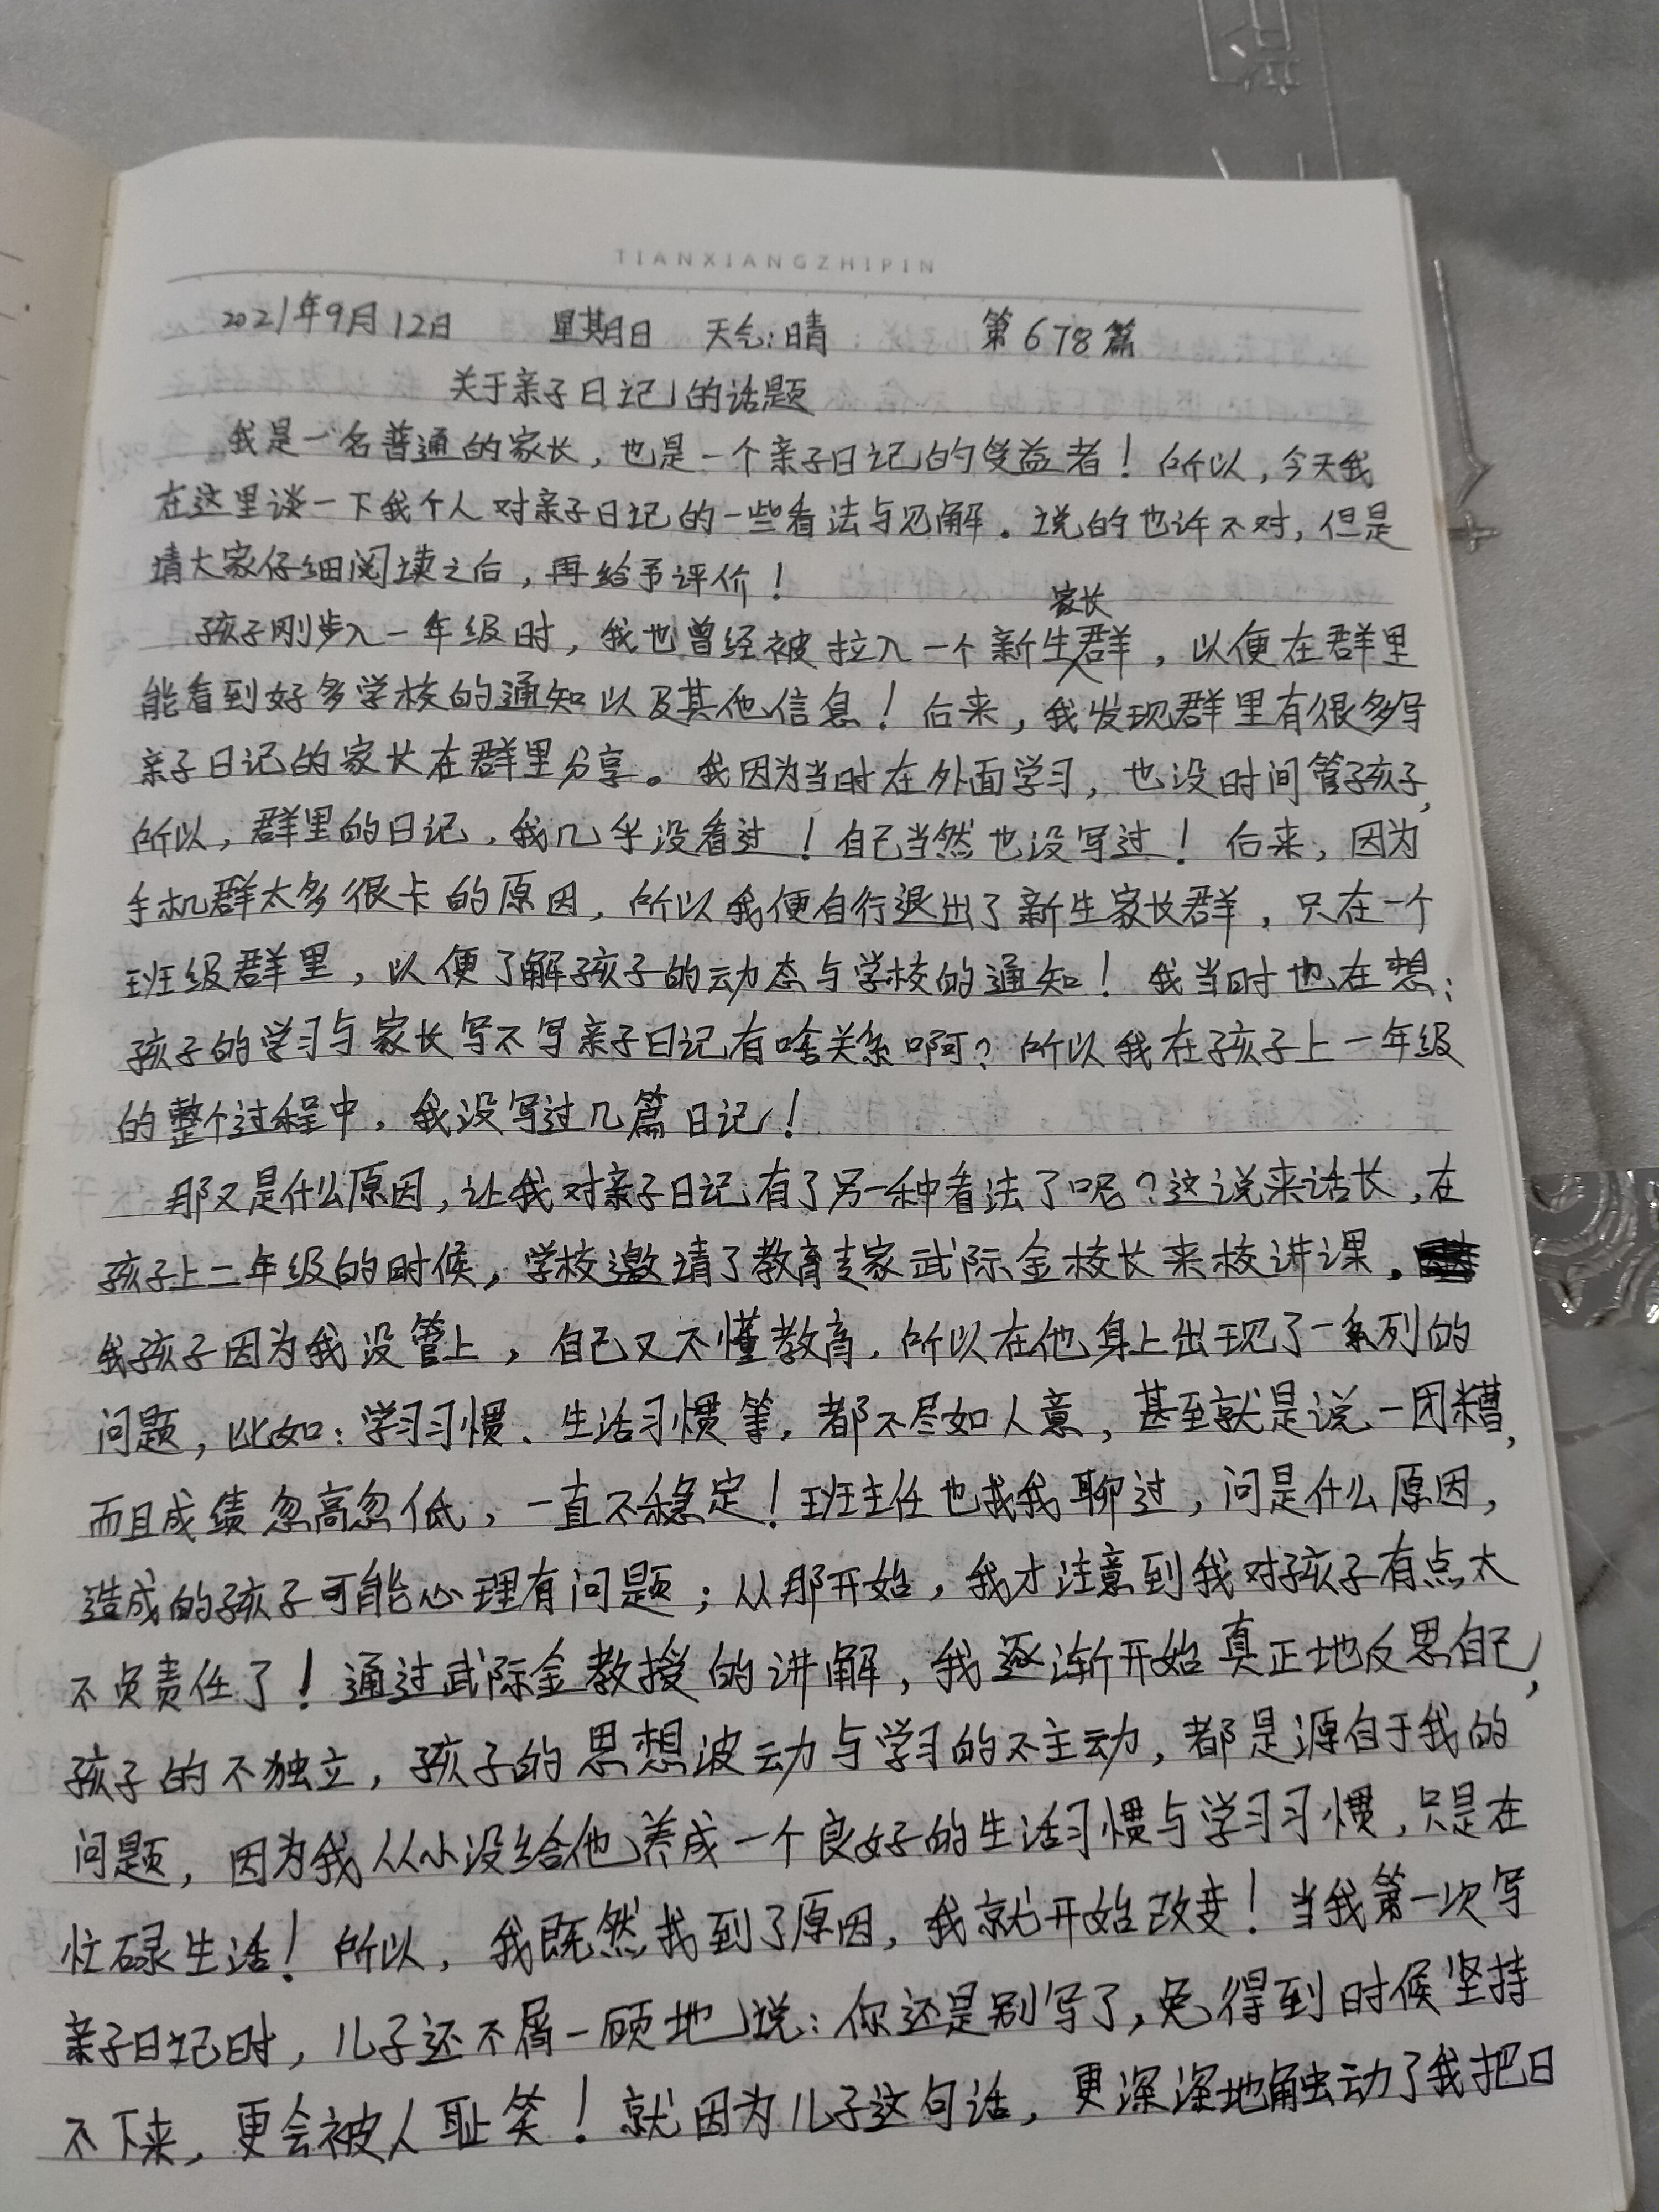 TIANXIANGZHIPIN
2021年9月12日 星期日 天气:晴 第678篇
关于亲子日记的话题
我是一名普通的家长，也是一个亲子日记的受益者！所以，今天我
在这里谈一下我个人对亲子日记的一些看法与见解。说的也许不对，但是
请大家仔细阅读之后，再给予评价！
孩子刚步入一年级时，我也曾经被拉入一个新生家长群，以便在群里
能看到好多学校的通知以及其他信息！后来，我发现群里有很多写
亲子日记的家长在群里分享。我因为当时在外面学习，也没时间管孩子，
所以，群里的日记，我几乎没看过！自己当然也没写过！后来，因为
手机群太多很卡的原因，所以我便自行退出了新生家长群，只在一个
班级群里，以便了解孩子的动态与学校的通知！我当时也在想：
孩子的学习与家长写不写亲子日记有啥关系啊？所以我在孩子上一年级
的整个过程中，我没写过几篇日记！
那又是什么原因，让我对亲子日记有了另一种看法了呢？这说来话长，在
孩子上二年级的时候，学校邀请了教育专家武际金校长来校讲课。
我孩子因为我没管上，自己又不懂教育，所以在他身上出现了一系列的
问题，比如：学习习惯、生活习惯等，都不尽如人意，甚至就是说一团糟，
而且成绩忽高忽低，一直不稳定！班主任也找我聊过，问是什么原因，
造成的孩子可能心理有问题；从那开始，我才注意到我对孩子有点太
不负责任了！通过武际金教授的讲解，我逐渐开始真正地反思自己，
孩子的不独立，孩子的思想波动与学习的不主动，都是源自于我的
问题，因为我从小没给他养成一个良好的生活习惯与学习习惯，只是在
忙碌生活！所以，我既然找到了原因，我就开始改变！当我第一次写
亲子日记时，儿子还不屑一顾地说：你还是别写了，免得到时候坚持
不下来，更会被人耻笑！就因为儿子这句话，更深深地触动了我把日